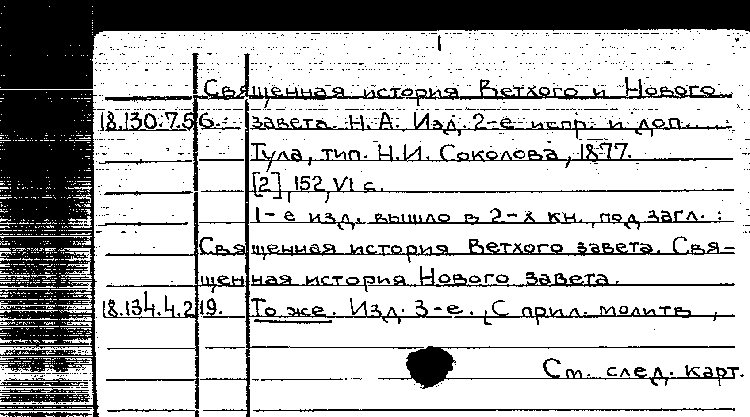 Священная история Ветхого и Нового
18.130.7.56. завета. Н.А. Изд. 2-е испр. и доп.
Тула, тип. Н.И. Соколова, 1877.
[2], 152, VI с.
1-е изд. вышло в 2-х кн., под загл.:
Священная история Ветхого завета. Свя-
щенная история Нового Завета.
18.134.4.219. То же. Изд. 3-е. С прил. молитв,
См. след. карт.